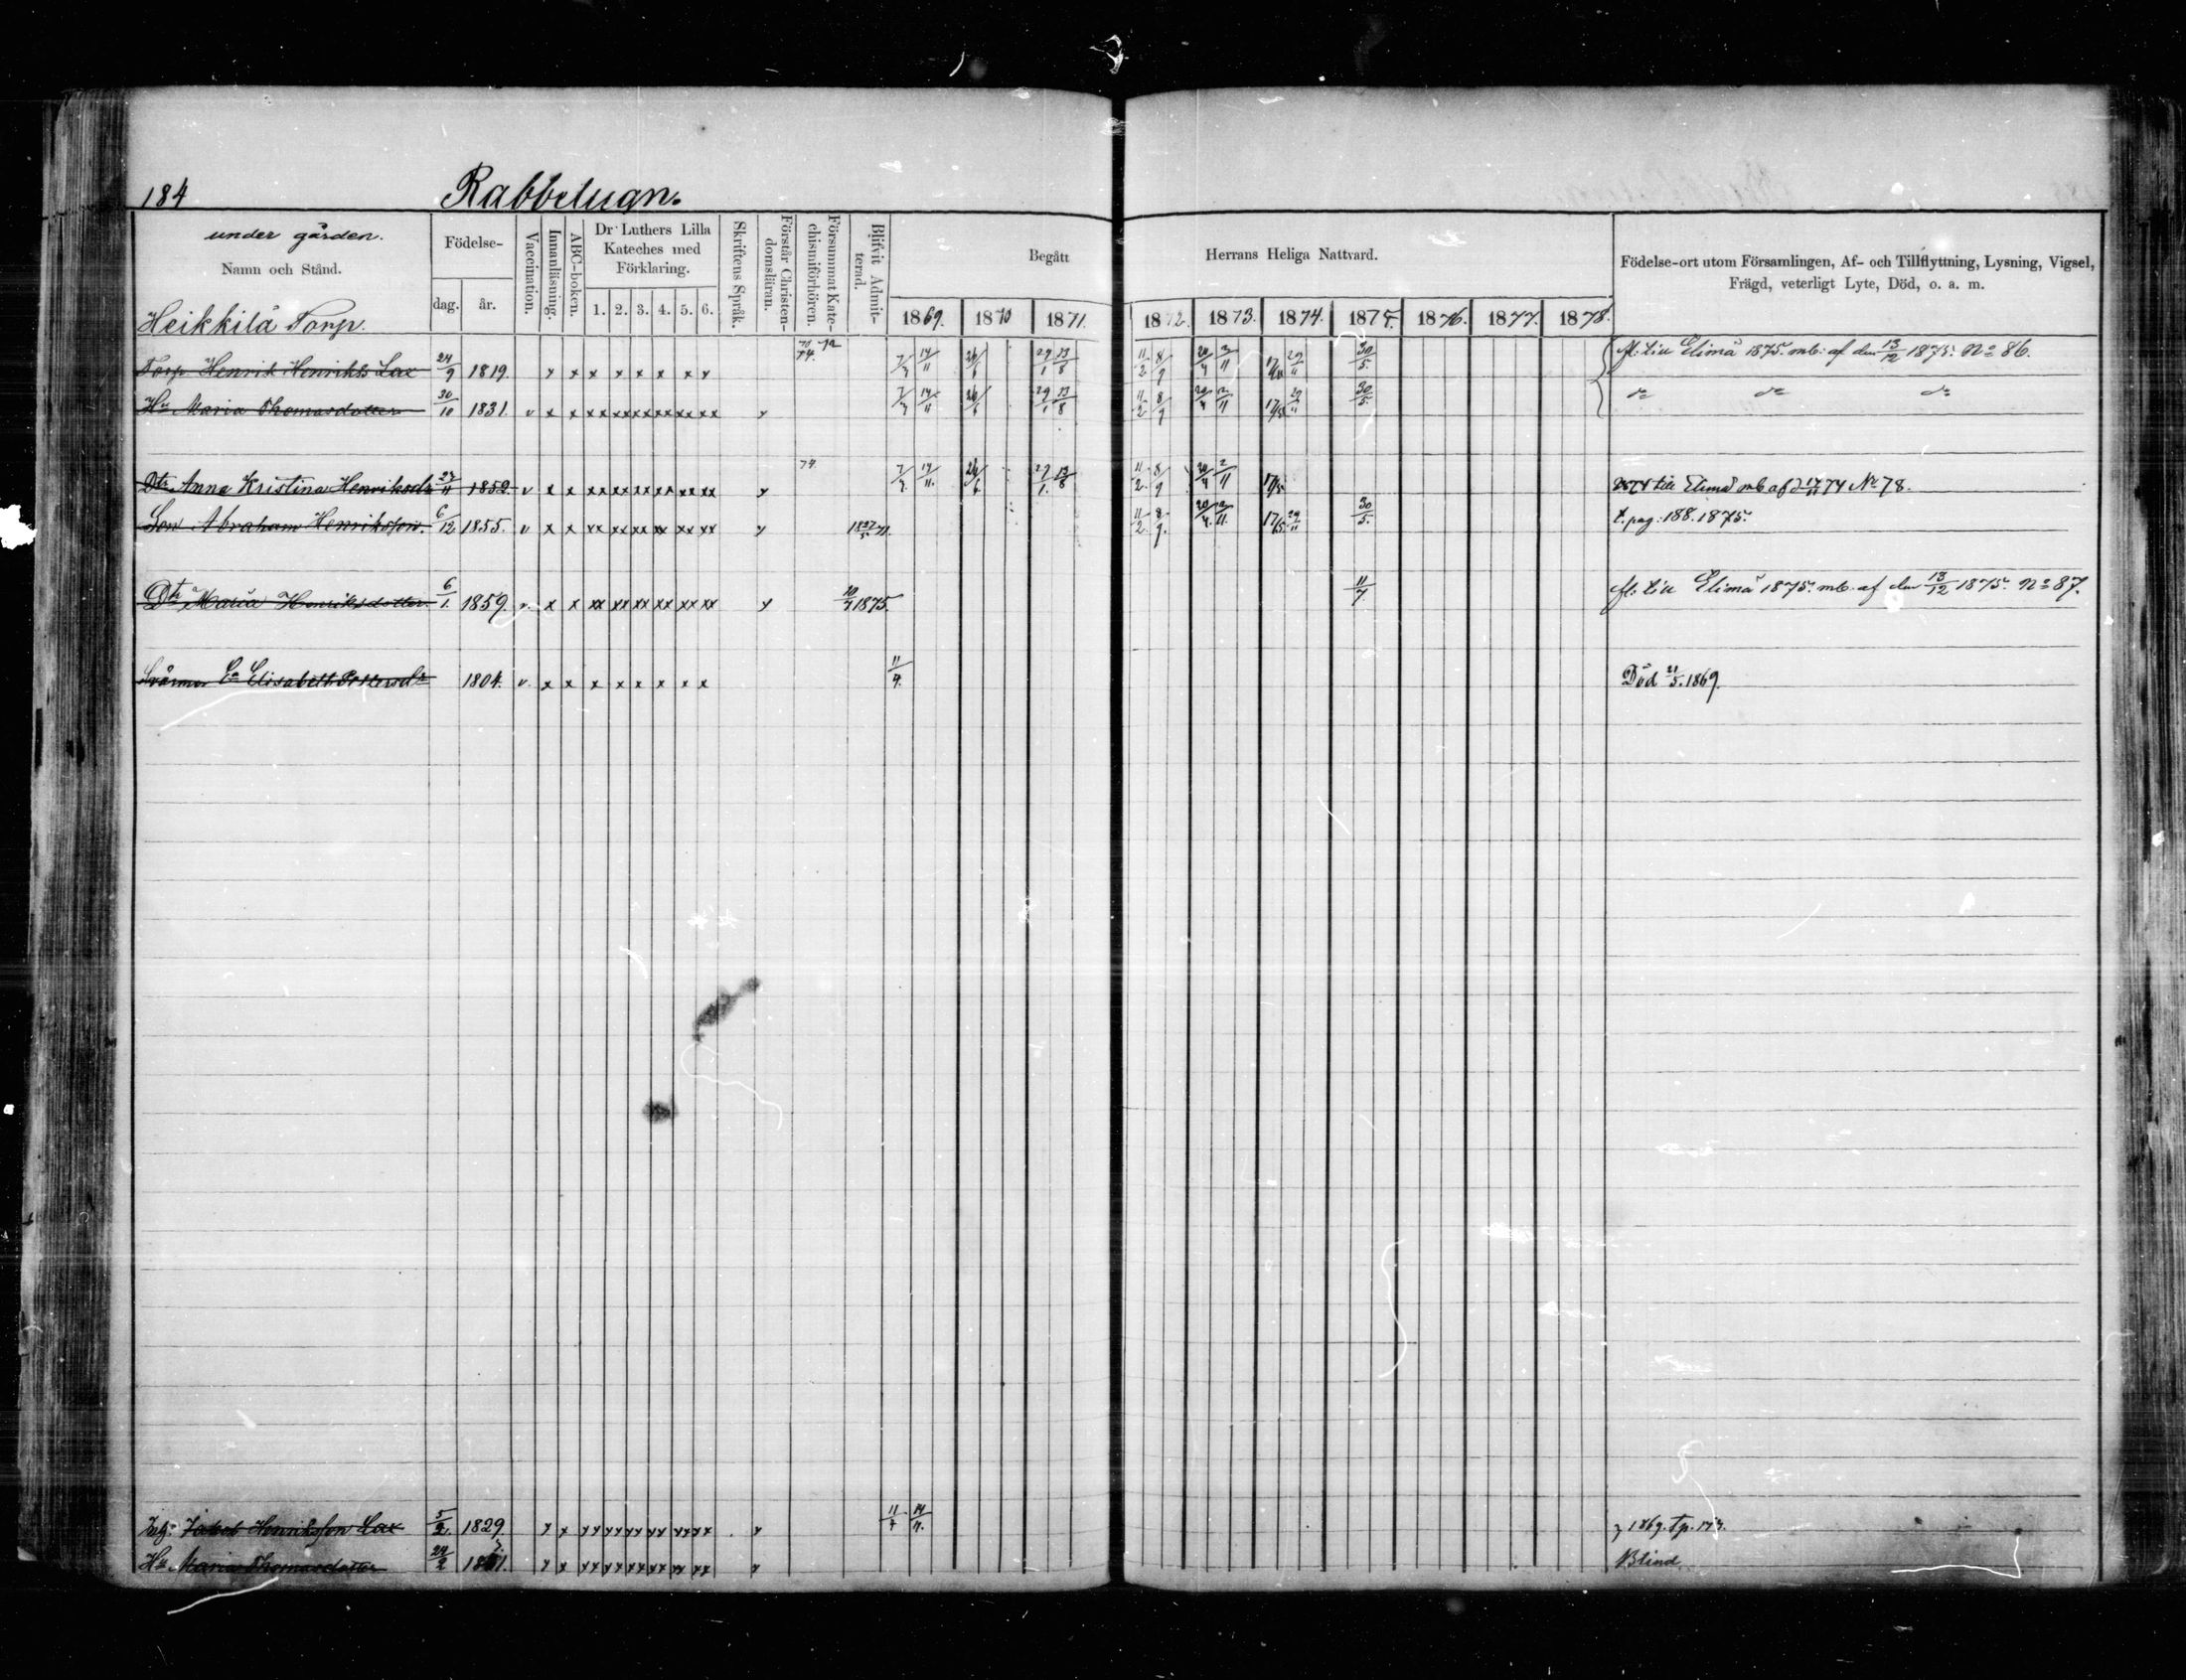 184 Rabbelugn.
under gården.
Namn och Stånd.
Heikkilä Torp.
Födelse- dag. år.
Vaccination.
Innanläsning.
ABC-boken.
Dr Luthers Lilla Kateches med Förklaring.
1. 2. 3. 4. 5. 6.
Skriftens Språk.
Förstår Christendomsläran.
Försummat Katechismiförhören.
Blifvit Admitterad.
Begått Herrans Heliga Nattvard.
1869. 1870 1871. 1872. 1873. 1874. 1875. 1876. 1877. 1878.
Födelse-ort utom Församlingen, Af- och Tillflyttning, Lysning, Vigsel,
Frägd, veterligt Lyte, Död, o. a. m.
Torp Henrik Henrikss Lax 24/9 1819. x x x x x x x x 74. 7/4 14/11 26/6 29/1 13/8 11/2 8/9 20/4 2/11 17/5 29/11 30/5. fl: till Elimä 1875. mb: af den 13/12 1875. No 86.
Hu Maria Thomasdotter 30/10 1831. v x x xx xx xx xx xx xx x 7/4 14/11 26/6 29/1 13/8 11/2 8/9 20/4 2/11 17/5 29/11 30/5. do do do
Dtr Anna Kristina Henriksdr 27/11 1852. v x x xx xx xx xx xx xx x 74 7/4. 14/11. 26/6 29/1. 13/8 11/2. 8/9 20/4 2/11 17/5 till Elimä mb af d 74 No 78.
Son Abraham Henriksson. 6/12 1855. v x x xx xx xx xx xx xx x 11/2. 8/9. 20/4. 2/11. 17/5. 29/11 30/5. t. pag. 188. 1875.
Dtr Maria Henriksdotter 6/1. 1859. v. x x xx xx xx xx xx xx x 1875. 11/7 fl: till Elimä 1875. mb. af den 13/12 1875. No 87.
Svärmor Ea Elisabeth 1804. v. x x x x x x x x 11/4. Död 21/5. 1869.
Jakob Henriksson Lax 5/2. 1829. x x xx xx xx xx xx xx x 11/4 14/11. 1869.
Hu Maria Thomasdotter 24/2 x x xx xx xx xx xx xx x Blind